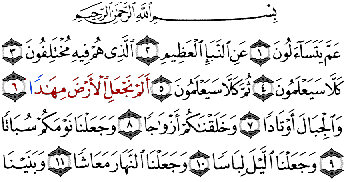 بِسْمِ اللَّهِ الرَّحْمَٰنِ الرَّحِيمِ
عَمَّ يَتَسَاءَلُونَ ١ عَنِ النَّبَإِ الْعَظِيمِ ٢ الَّذِي هُمْ فِيهِ مُخْتَلِفُونَ ٣
كَلَّا سَيَعْلَمُونَ ٤ ثُمَّ كَلَّا سَيَعْلَمُونَ ٥ أَلَمْ نَجْعَلِ الْأَرْضَ مِهَٰدًا ٦
وَالْجِبَالَ أَوْتَادًا ٧ وَخَلَقْنَاكُمْ أَزْوَاجًا ٨ وَجَعَلْنَا نَوْمَكُمْ سُبَاتًا
٩ وَجَعَلْنَا اللَّيْلَ لِبَاسًا ١٠ وَجَعَلْنَا النَّهَارَ مَعَاشًا ١١ وَبَنَيْنَا